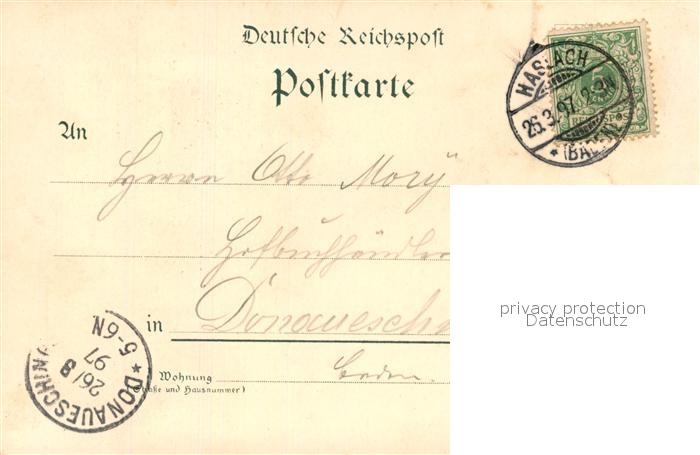 Deutsche Reichspost
Postkarte
HASLACH
26.3.97. 2-3N
* (BADEN)
5
REICHSPOST
An
Herrn Otto Mory
Hofbuchhändler
in Donauesch
Baden.
Wohnung
(Straße und Hausnummer)
DONAUESCHIN
26/3
97
5-6N
privacy protection
Datenschutz